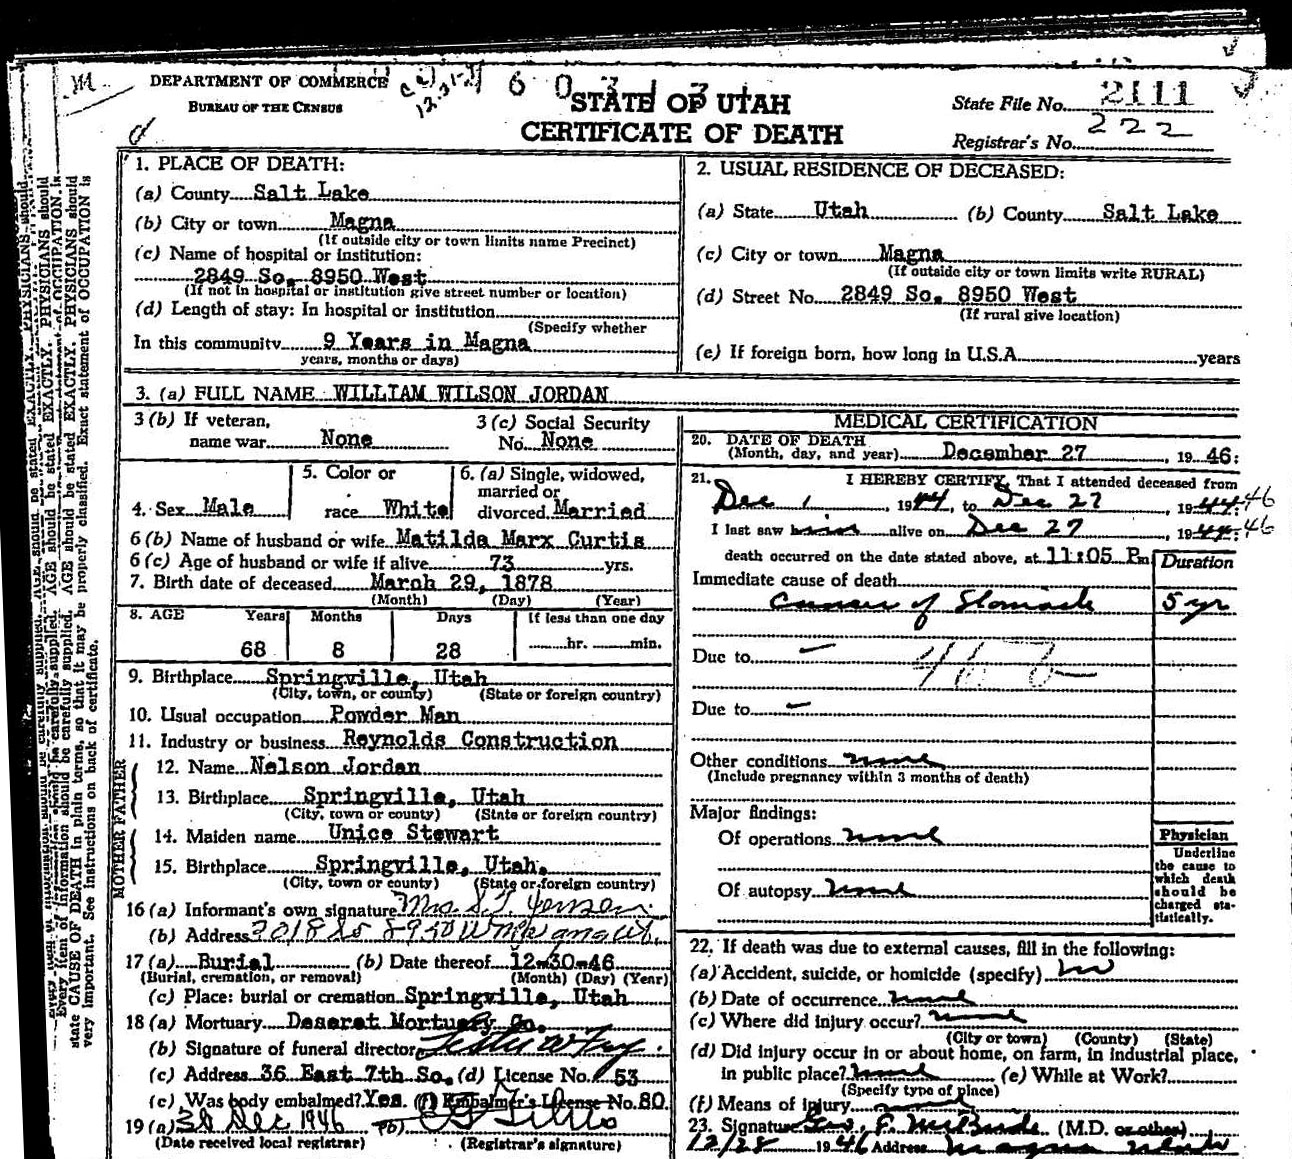 DEPARTMENT OF COMMERCE
BUREAU OF THE CENSUS
STATE OF UTAH
CERTIFICATE OF DEATH
State File No. 2111
Registrar's No. 222
1. PLACE OF DEATH:
(a) County Salt Lake
(b) City or town Magna
(If outside city or town limits name Precinct)
(c) Name of hospital or institution:
2849 So. 8950 West
(If not in hospital or institution give street number or location)
(d) Length of stay: In hospital or institution
(Specify whether
In this community 9 Years in Magna
years, months or days)
2. USUAL RESIDENCE OF DECEASED:
(a) State Utah (b) County Salt Lake
(c) City or town Magna
(If outside city or town limits write RURAL)
(d) Street No. 2849 So. 8950 West
(If rural give location)
(e) If foreign born, how long in U.S.A. years
3. (a) FULL NAME WILLIAM WILSON JORDAN
3 (b) If veteran,
name war None
3 (c) Social Security
No. None
4. Sex Male
5. Color or
race White
6. (a) Single, widowed,
married or
divorced Married
6 (b) Name of husband or wife Matilda Marx Curtis
6 (c) Age of husband or wife if alive 73 yrs.
7. Birth date of deceased March 29, 1878
(Month) (Day) (Year)
8. AGE Years Months Days If less than one day
68 8 28 hr. min.
9. Birthplace Springville, Utah
(City, town, or county) (State or foreign country)
10. Usual occupation Powder Man
11. Industry or business Reynolds Construction
FATHER
12. Name Nelson Jordan
13. Birthplace Springville, Utah
(City, town or county) (State or foreign country)
MOTHER
14. Maiden name Unice Stewart
15. Birthplace Springville, Utah.
(City, town or county) (State or foreign country)
16 (a) Informant's own signature Mrs S.T. Jensen
(b) Address 3018 So 8950 W Magna Ut.
17 (a) Burial (b) Date thereof 12-30-46
(Burial, cremation, or removal) (Month) (Day) (Year)
(c) Place: burial or cremation Springville, Utah
18 (a) Mortuary Deseret Mortuary Co.
(b) Signature of funeral director
(c) Address 36 East 7th So. (d) License No. 53
(e) Was body embalmed? Yes. (f) Embalmer's License No. 80
19 (a) 30 Dec 1946 (b)
(Date received local registrar) (Registrar's signature)
MEDICAL CERTIFICATION
20. DATE OF DEATH
(Month, day, and year) December 27 , 19 46:
21. I HEREBY CERTIFY, That I attended deceased from
Dec 1 , 1944, to Dec 27 , 19 44: 46
I last saw him alive on Dec 27 , 19 44: 46
death occurred on the date stated above, at 11:05 Pm
Duration
Immediate cause of death
Cancer of Stomach 5 yr
Due to —
46b
Due to —
Other conditions none
(Include pregnancy within 3 months of death)
Major findings:
Of operations none
Of autopsy none
Physician
Underline
the cause to
which death
should be
charged sta-
tistically.
22. If death was due to external causes, fill in the following:
(a) Accident, suicide, or homicide (specify) no
(b) Date of occurrence none
(c) Where did injury occur? none
(City or town) (County) (State)
(d) Did injury occur in or about home, on farm, in industrial place,
in public place? none (e) While at Work?
(Specify type of place)
(f) Means of injury none
23. Signature Geo. F. McBride (M.D. or other)
12/28 1946 Address Magna Utah